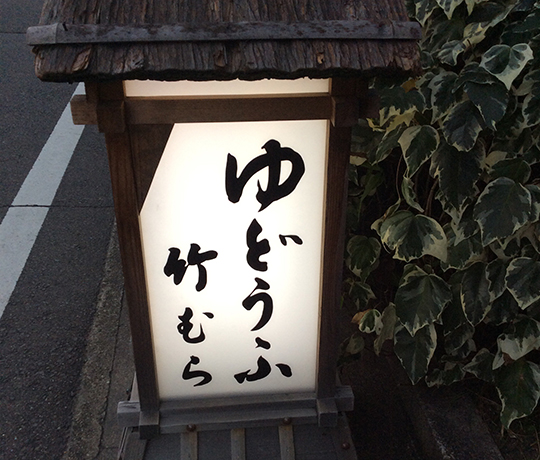 ゆどうふ
竹むら